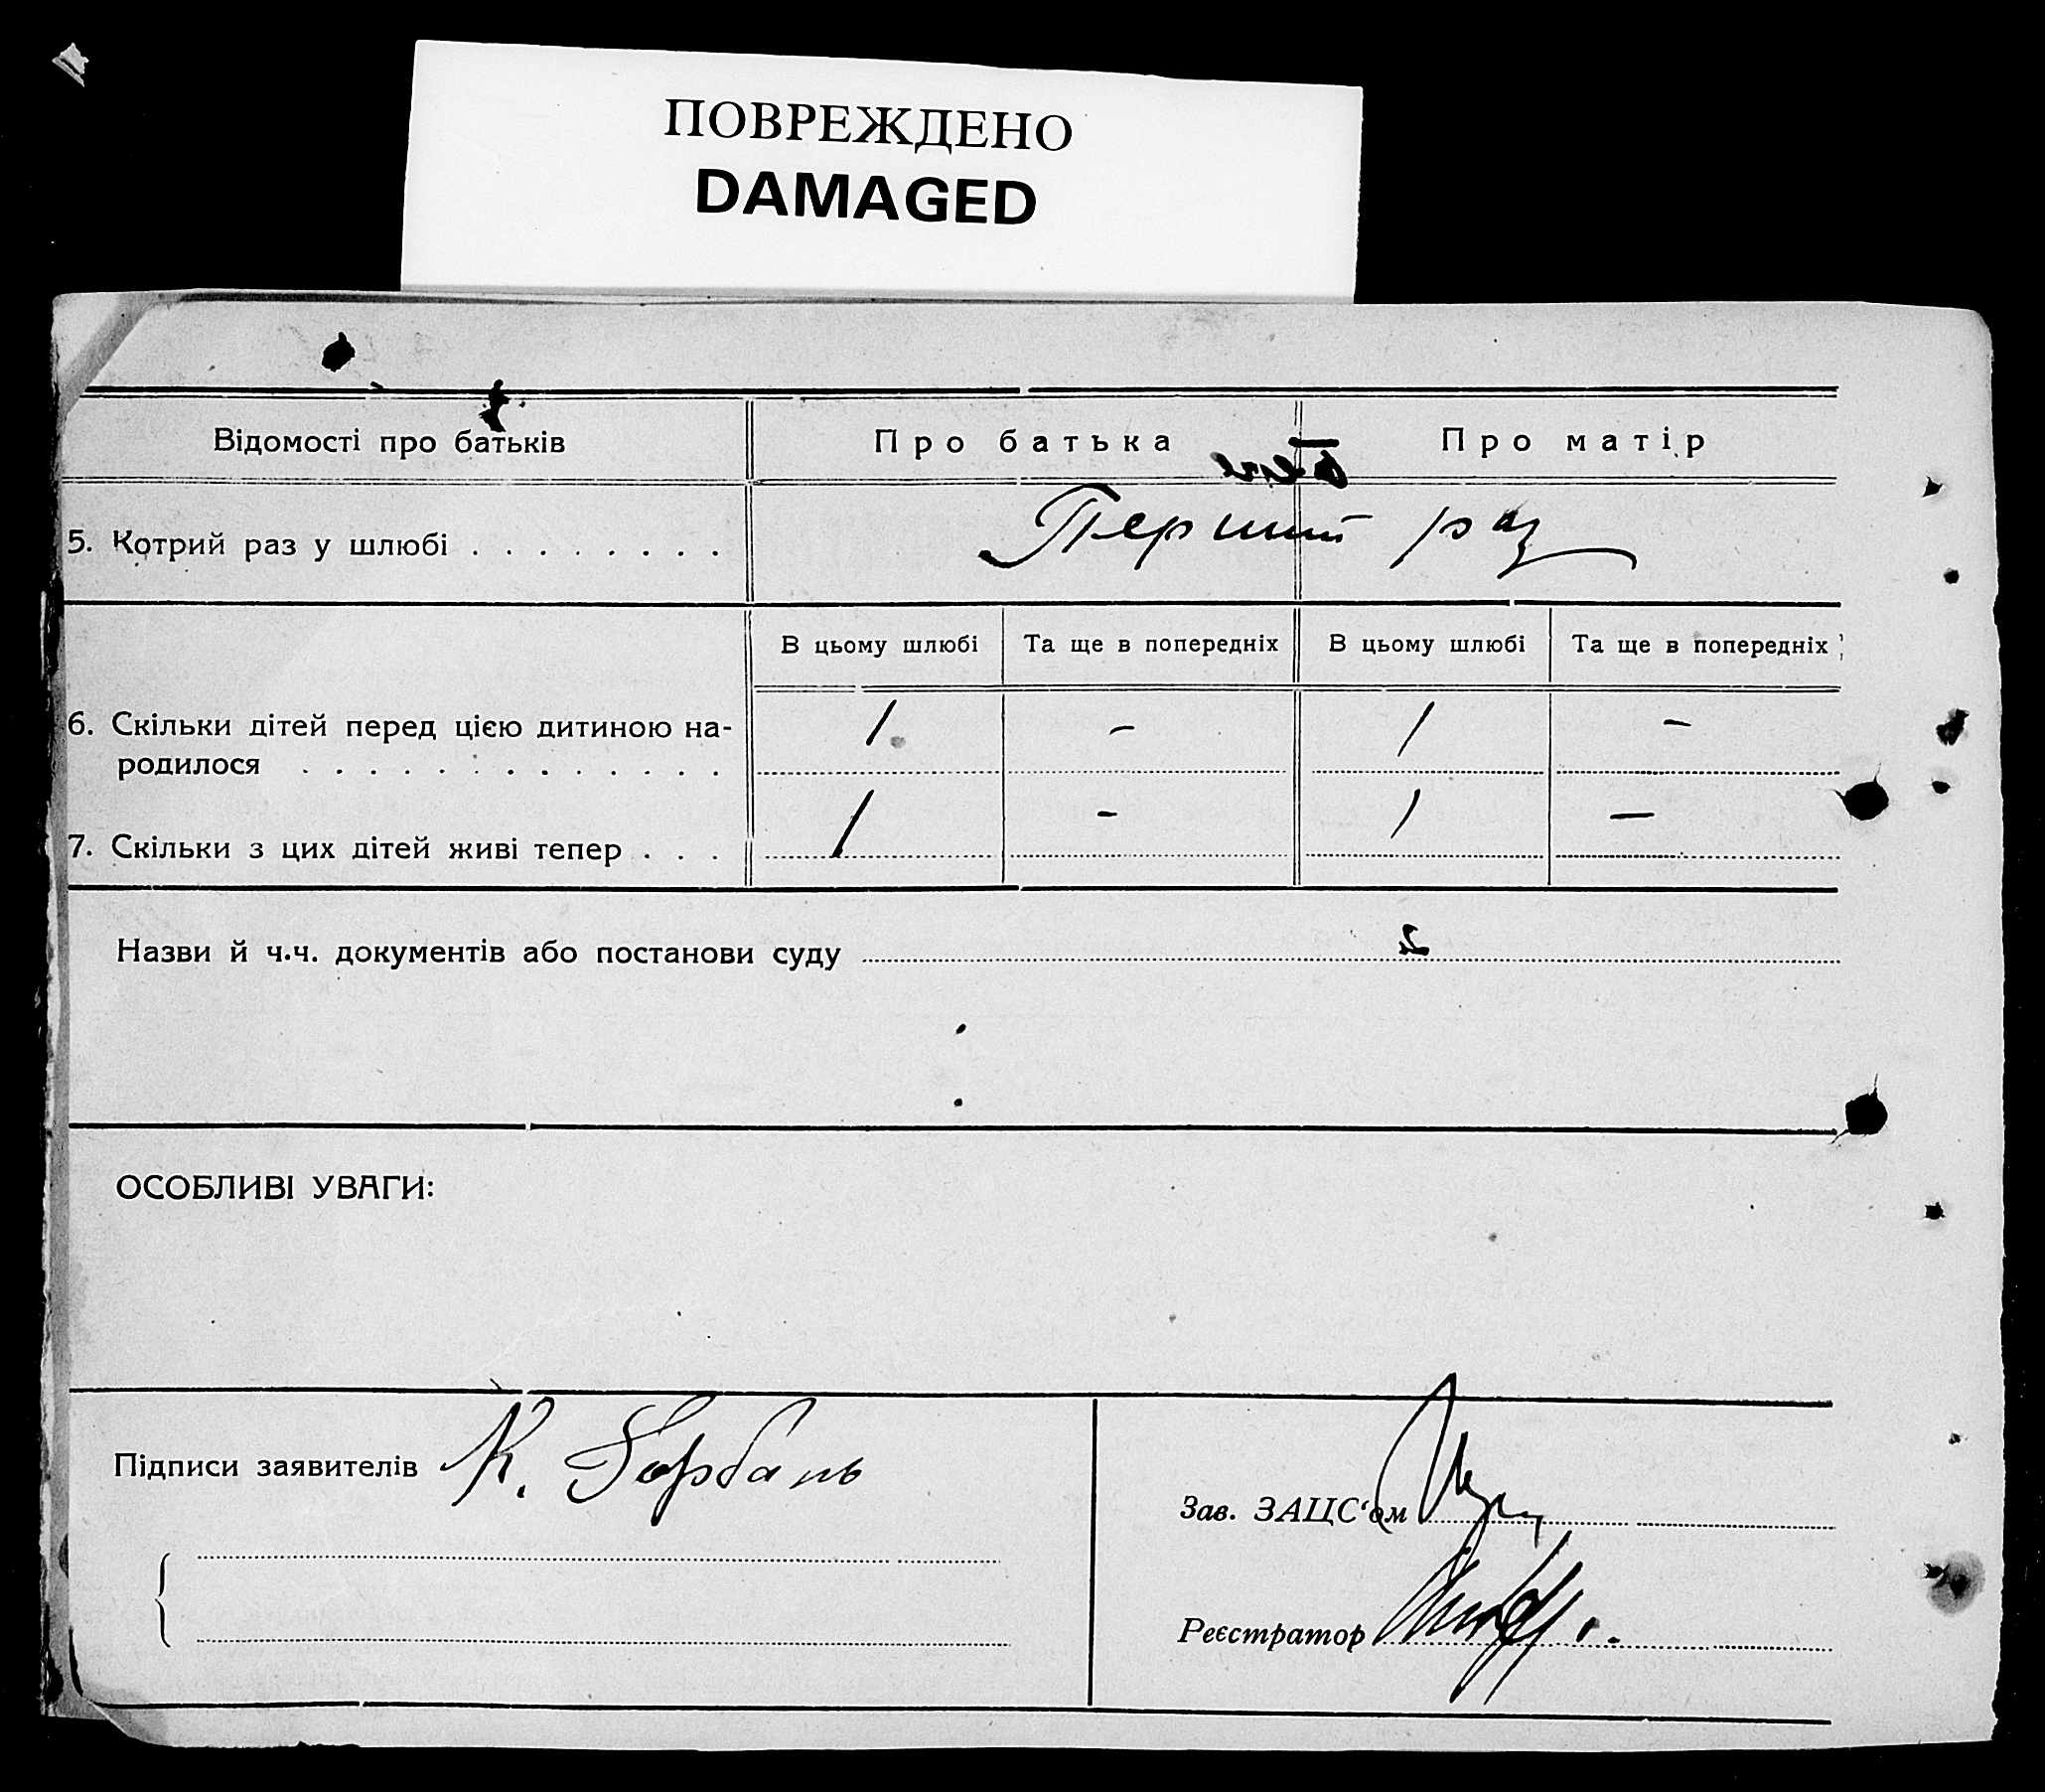 ПОВРЕЖДЕНО
DAMAGED
Відомості про батьків Про батька Про матір
5. Котрий раз у шлюбі . . . . . . . . Перший раз
В цьому шлюбі Та ще в попередніх В цьому шлюбі Та ще в попередніх
6. Скільки дітей перед цією дитиною на-
родилося . . . . . . . . . . . . . 1 – 1 –
7. Скільки з цих дітей живі тепер . . . 1 – 1 –
Назви й ч.ч. документів або постанови суду
ОСОБЛИВІ УВАГИ:
Підписи заявителів К. Горбань
Зав. ЗАЦС‘ом
Реєстратор